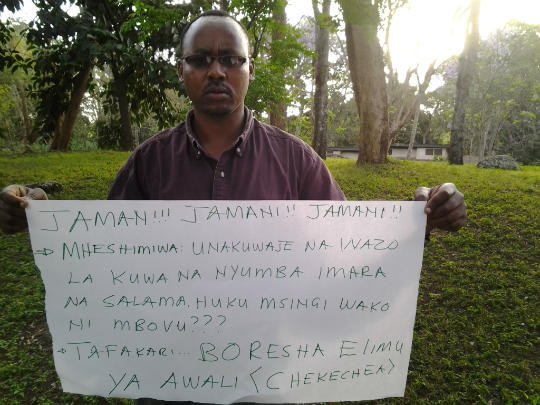 JAMANI!!! JAMANI!! JAMANI!!
⇒ MHESHIMIWA: UNAKUWAJE NA WAZO
LA KUWA NA NYUMBA IMARA
NA SALAMA, HUKU MSINGI WAKO
NI MBOVU???
⇒ TAFAKARI... BORESHA ELIMU
YA AWALI <CHEKECHEA>